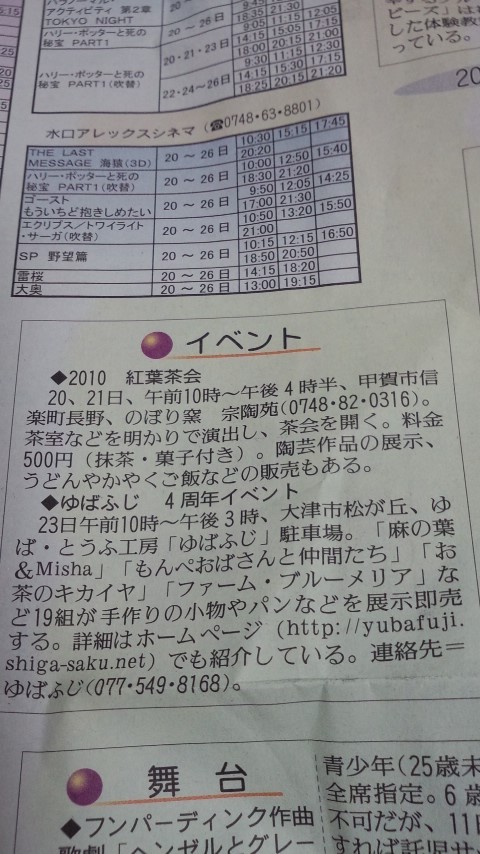 アクティビティ 第2章
TOKYO NIGHT
20 ～ 26日
18:35 21:30
ハリー・ポッターと死の
秘宝 PART1
20・21・23日
9:05 11:15 12:05
14:15 15:05 17:15
18:00 20:15 21:00
ハリー・ポッターと死の
秘宝 PART1(吹替)
22・24～26日
9:30 11:15 12:30
14:15 15:30 17:15
18:25 20:15 21:20
水口アレックスシネマ (☎0748・63・8801)
THE LAST
MESSAGE 海猿(3D)
20 ～ 26日
10:30 15:15 17:45
20:20
ハリー・ポッターと死の
秘宝 PART1(吹替)
20 ～ 26日
10:00 12:50 15:40
18:30 21:20
ゴースト
もういちど抱きしめたい
20 ～ 26日
9:50 12:05 14:25
17:00 21:30
エクリプス/トワイライト
・サーガ(吹替)
20 ～ 26日
10:50 13:20 15:50
21:00
SP 野望篇
20 ～ 26日
10:15 12:15 16:50
18:50 20:50
雷桜
20 ～ 26日
14:15 18:20
大奥
20 ～ 26日
13:00 19:15
した体験教
っている。
20
イベント
◆2010 紅葉茶会
20、21日、午前10時～午後4時半、甲賀市信
楽町長野、のぼり窯 宗陶苑(0748・82・0316)。
茶室などを明かりで演出し、茶会を開く。料金
500円(抹茶・菓子付き)。陶芸作品の展示、
うどんやかやくご飯などの販売もある。
◆ゆばふじ 4周年イベント
23日午前10時～午後3時、大津市松が丘、ゆ
ば・とうふ工房「ゆばふじ」駐車場。「麻の葉
＆Misha」「もんぺおばさんと仲間たち」「お
茶のキカイヤ」「ファーム・ブルーメリア」な
ど19組が手作りの小物やパンなどを展示即売
する。詳細はホームページ(http://yubafuji.
shiga-saku.net)でも紹介している。連絡先＝
ゆばふじ(077・549・8168)。
舞台
◆フンパーディンク作曲
歌劇「ヘンゼルとグレー
青少年(25歳未
全席指定。6歳
不可だが、11日
すれば託児サ